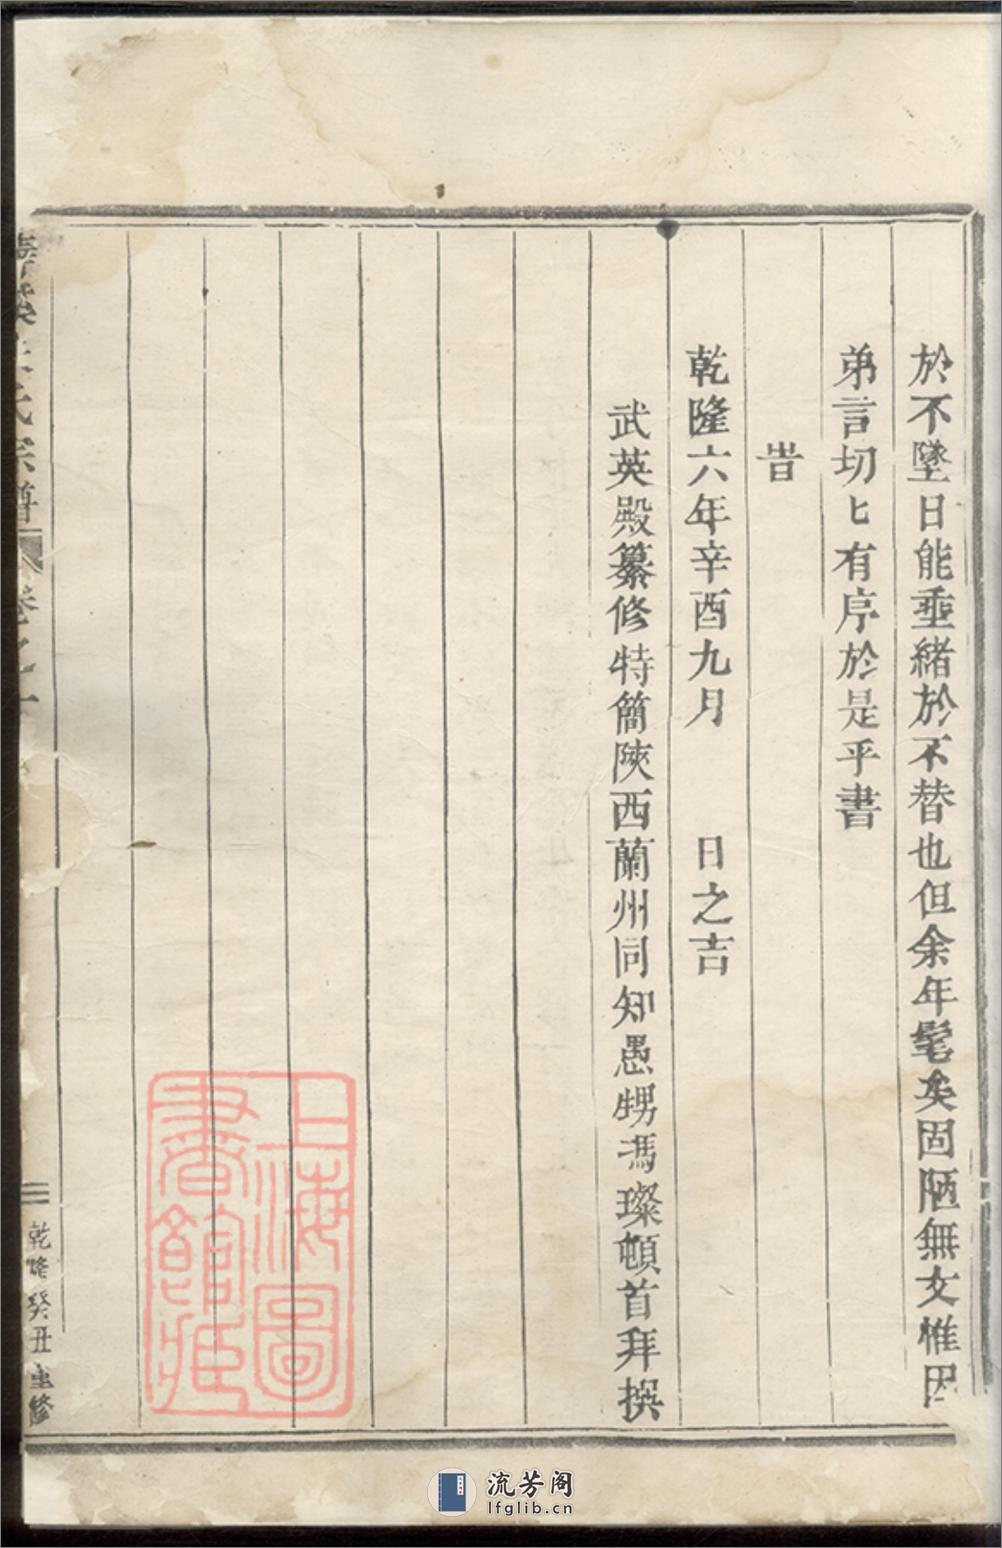 於不墜日能垂緒於不替也但余年髦矣固陋無文惟因
弟言切匕有序於是乎書
旹
乾隆六年辛酉九月　日之吉
武英殿纂修特簡陝西蘭州同知愚甥馮璨頓首拜撰
氏宗譜
卷之一
乾隆癸丑重修
上海圖書館藏
流芳阁
lfglib.cn